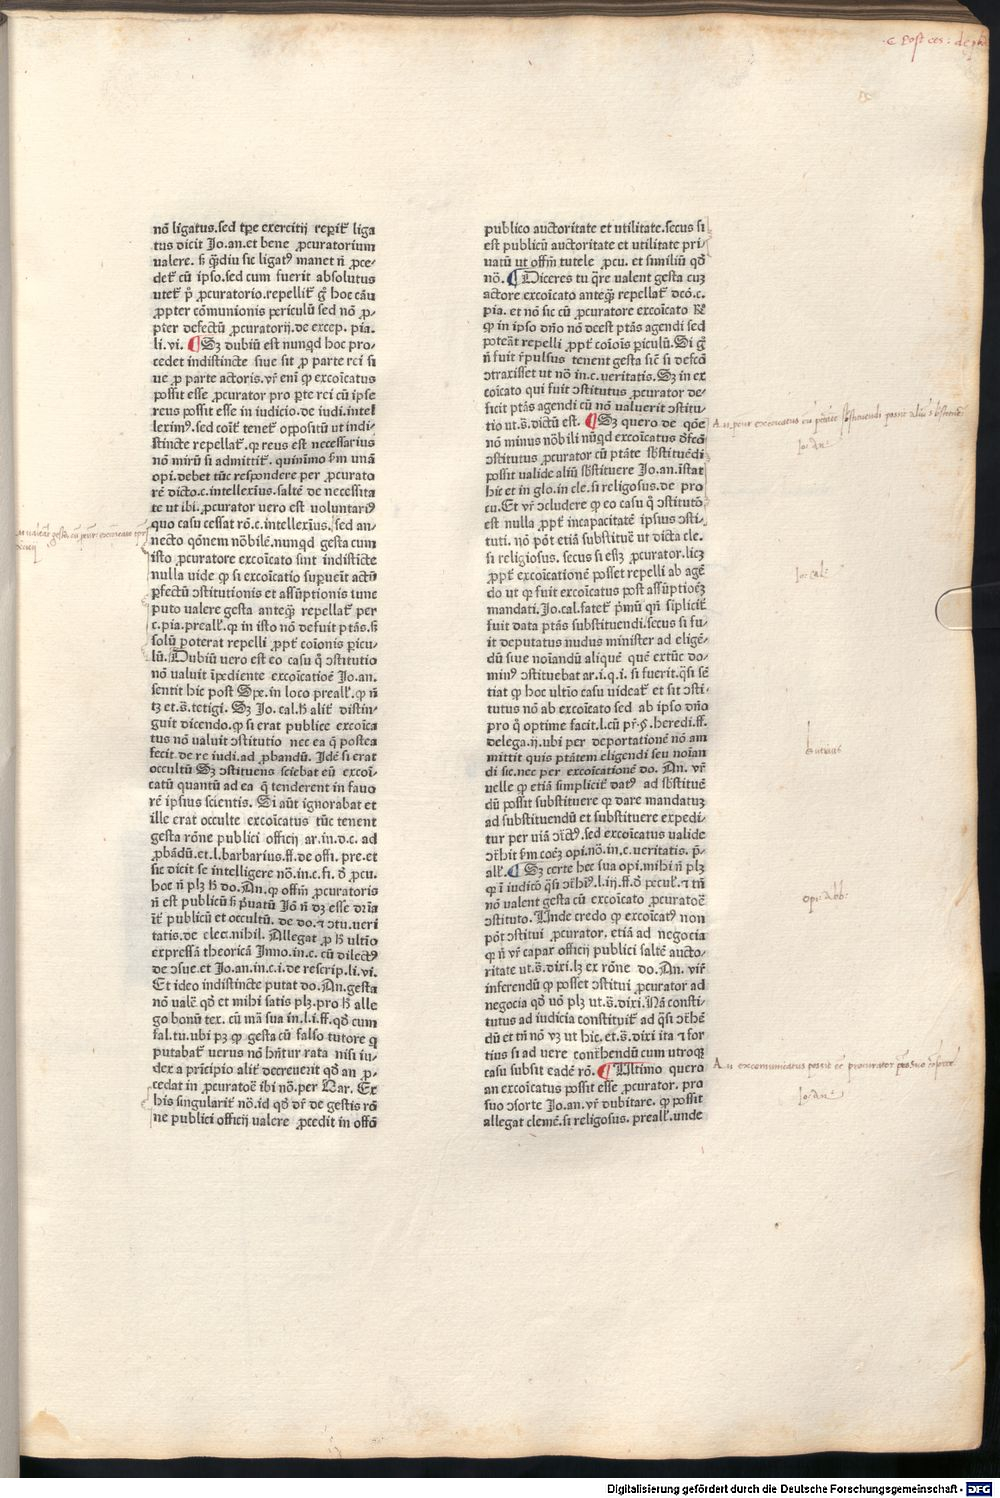 nõ ligatus.sed tꝑe exercitij reꝑit᷑ liga
tus dicit Jo.an.et bene ꝓcuratorium
valere. ẜ q̃diu sic ligatꝰ manet ñ ꝓce⸗
det᷑ cũ ipso.sed cum fuerit absolutus
utet᷑ ꝓcuratorio.repellit᷑ g̃ hoc cãu
ꝓpter cõmunionis periculũ sed nõ ꝓ⸗
pter defectũ ꝓcuratorij.de excep. pia.
li.vi. ¶ Sꝫ dubiũ est nunqd hoc pro⸗
cedet indistincte siue sit ꝓ parte rei si
ue ꝓ parte actoris. vr̃ eni ꝙ excoicatus
possit esse ꝓcurator pro ꝑte rei cũ ipse
reus possit esse in iudicio.de iudi.intel
leximꝰ.sed coit᷑ tenet᷑ oppositũ ut indi⸗
stincte repellat᷑.ꝙ reus est necessarius
nõ mirũ si admittit᷑. quinimo ẜm unã
opi.debet tũc respondere per ꝓcurato
rẽ dicto.c.intellexiꝰus.saltẽ de necessita
te ut ibi.ꝓcurator uero est uoluntariꝰ
quo casu cessat rõ.c.intellexiꝰus.sed an⸗
necto qõnem nõbilẽ.nunqd gesta cum
isto ꝓcuratore excoicato sint indisticte
nulla uide ꝙ si excoicatio suꝑueit actũ
ꝑfectũ ↄstitutionis et assũptionis tunc
puto ualere gesta anteq̃ repellat᷑ per
c.pia.preall᷑.ꝙ in isto nõ defuit ptãs.ẜ
solũ poterat repelli ꝓpt᷑ coionis ꝑicu⸗
lũ. Dubiũ uero est eo casu q̃ ↄstitutio
nõ valuit ipediente excoicatioẽ Jo.an.
sentit hic post Spe.in loco preall᷑.ꝙ ñ
tꝫ et.s̃.tetigi. Sꝫ Jo.cal.ħ alit᷑ distin⸗
guit dicendo.ꝙ si erat publice excoica
tus nõ valuit ↄstitutio nec ea q̃ postea
fecit.de re iudi.ad ꝓbandũ. Idẽ si erat
occultũ Sꝫ ↄstituens sciebat eũ excoi⸗
catũ quantũ ad ea q̃ tenderent in fauo
rẽ ipsius scientis. Si aũt ignorabat et
ille erat occulte excoicatus tũc tenent
gesta rõne publici officij ar.in.d.c. ad
ꝓbãdũ.et.l.barbarius.ff.de offi. pre.et
sic dicit se intelligere nõ.in.c.fi. d̃ ꝓcu.
hoc ñ plꝫ ħ do.An.ꝙ offim̃ ꝓcuratoris
ñ est publicũ ẜ ꝑuatũ Jõ ñ dꝫ esse dr̃ia
it᷑ publicũ et occultũ. de do.⁊ ↄtu.ueri
tatis.de elec.nihil. Allegat ꝓ ħ ultio
expressã theoricã Inno.in.c. cũ dilectꝰ
de ↄsue.et Jo.an.in.c.i.de rescrip.li.vi.
Et ideo indistincte putat do.An.gesta
nõ ualẽ qd̃ et mihi satis plꝫ.pro ħ alle
go bonũ tex. cũ mã sua in.l.i.ff.qd̃ cum
fal.tu.ubi pꝫ ꝙ gesta cũ falso tutore ꝙ
putabat᷑ uerus nõ hñtur rata nisi iu⸗
dex a prĩcipio alit᷑ decreuerit qd̃ an ꝓ⸗
cedat in ꝓcuratoẽ ibi nõ.per Bar. Ex
his singularit᷑ nõ.id qd̃ dr̃ de gestis rõ
ne publici officij valere ꝓcedit in offõ
publico auctoritate et utilitate.secus si
est publicũ auctoritate et utilitate pri⸗
uatũ ut offim̃ tutele ꝓcu. et similiũ qd̃
nõ. ¶ Diceres tu q̃re ualent gesta cuꝫ
actore excoicato anteq̃ repellat᷑ dcõ.c.
pia. et nõ sic cũ ꝓcuratore excoicato
ꝙ in ipso dño nõ deest ptãs agendi sed
poteãt repelli ꝓpt᷑ coiois ꝑiculũ.Si g̃
ñ fuit r̃pulsus tenent gesta sicẽ si defcõ
ↄtraxisset ut nõ in.c.veritatis. Sꝫ in ex
coicato qui fuit ↄstitutus ꝓcurator de⸗
ficit ptãs agendi cũ nõ valuerit ↄstitu⸗
tio ut.s̃.dictũ est. ¶ Sꝫ quero de qõe
nõ minus nõbili nũqd excoicatus
ↄstitutus ꝓcurator cũ ptãte sbstituẽdi
possit valide aliũ sbstituere Jo.an.istat
hic et in glo.in cle.si religiosus.de pro
cu.Et vr̃ ↄcludere ꝙ eo casu q̃ ↄstitutõ
est nulla ꝓpt᷑ incapacitatẽ ipsius ↄsti⸗
tuti. nõ põt etiã substituẽ ut dicta cle.
si religiosus. secus si essꝫ ꝓcurator.licꝫ
ꝓpt᷑ excoicationẽ posset repelli ab agẽ
do ut ꝙ fuit excoicatus post assũptioẽꝫ
mandati.Jo.cal.fatet᷑ ṗmũ qñ siplicit᷑
fuit data ptãs substituendi.secus si fu⸗
it deputatus nudus minister ad eligẽ⸗
dũ siue noiandũ aliquẽ quẽ extũc do⸗
minꝰ ↄstituebat ar.i.q.i. si fuerit.q̃si sẽ
tiat ꝙ hoc ultio casu uideat᷑ et sit ↄsti⸗
tutus nõ ab excoicato sed ab ipso dño
pro q̃ optime facit.l.cũ pr̃.§.heredi.ff.
delega.ij.ubi per deportationẽ nõ am
mittit quis ptãtem eligendi seu noian
di sic.nec per excoicationẽ do. An. vr̃
uelle ꝙ etiã simplicit᷑ datꝰ ad sbstituẽ
dũ possit substituere ꝙ dare mandatuꝫ
ad substituendũ et substituere expedi⸗
tur per uiã ↄr̃ctꝰ.sed excoicatus valide
ↄr̃hit ẜm coẽꝫ opi.nõ.in.c.ueritatis. p̃⸗
all᷑. ¶ Sꝫ certe hec sua opi.mihi ñ plꝫ
ꝙ ĩ iudicõ q̃si ↄr̃hit᷑.l.iij.ff.d̃ pecul.⁊ tñ
nõ valent gesta cũ excoicato ꝓcuratoẽ
ↄstituto. Unde credo ꝙ excoicatꝰ non
põt ↄstitui ꝓcurator, etiã ad negocia
ꝙ ñ vr̃ capax officij publici saltẽ aucto⸗
ritate ut.s̃.dixi.lꝫ ex rõne do. An. vir᷑
inferendũ ꝙ posset ↄstitui ꝓcurator ad
negocia qd̃ uõ plꝫ ut.s̃.dixi. Nã consti⸗
tutus ad iudicia constituit᷑ ad q̃si ↄr̃hẽ
dũ et tñ nõ vꝫ ut hic.et.s̃.dixi ita ⁊ for
tius si ad uere contr̃hendũ cum utroqꝫ
casu subsit eadẽ rõ. ¶ Ultimo quero
an excoicatus possit esse ꝓcurator. pro
suo ↄsorte Jo.an.vr̃ dubitare. ꝙ possit
allegat clemẽ.si religiosus. preall᷑.unde
Jo: An:
Jo: cal:
butrius
opi: Abb:
An excomunicatus possit eẽ procurator pro suo consorte
Jo: An:
Digitalisierung gefördert durch die Deutsche Forschungsgemeinschaft - DFG